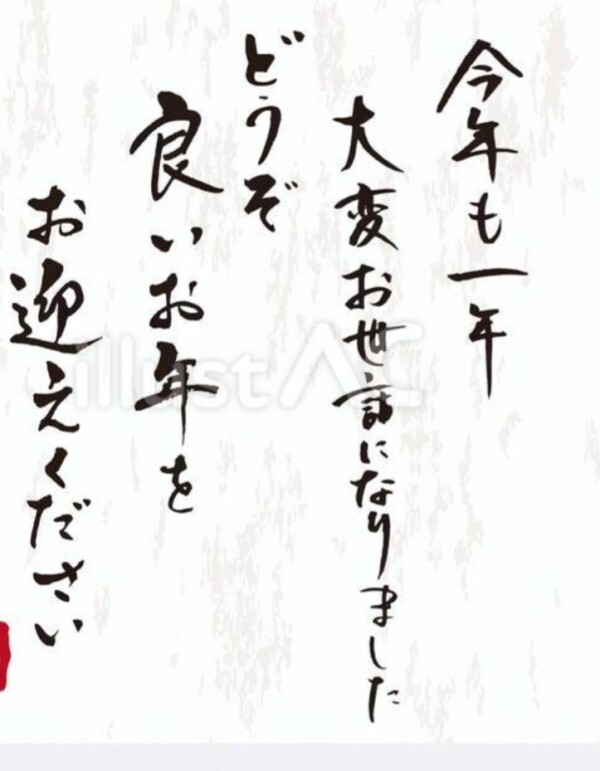 今年も一年
大変お世話になりました
どうぞ
良いお年を
お迎えください
illustAC